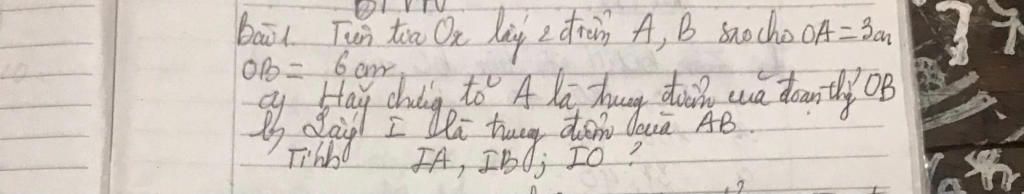 BTVN
Bài 1. Trên tia Ox lấy 2 điểm A, B sao cho OA = 3cm
OB = 6 cm
a, Hãy chứng tỏ A là trung điểm của đoạn thg OB
b, Lấy I là trung điểm của AB.
Tính IA, IB, IO ?